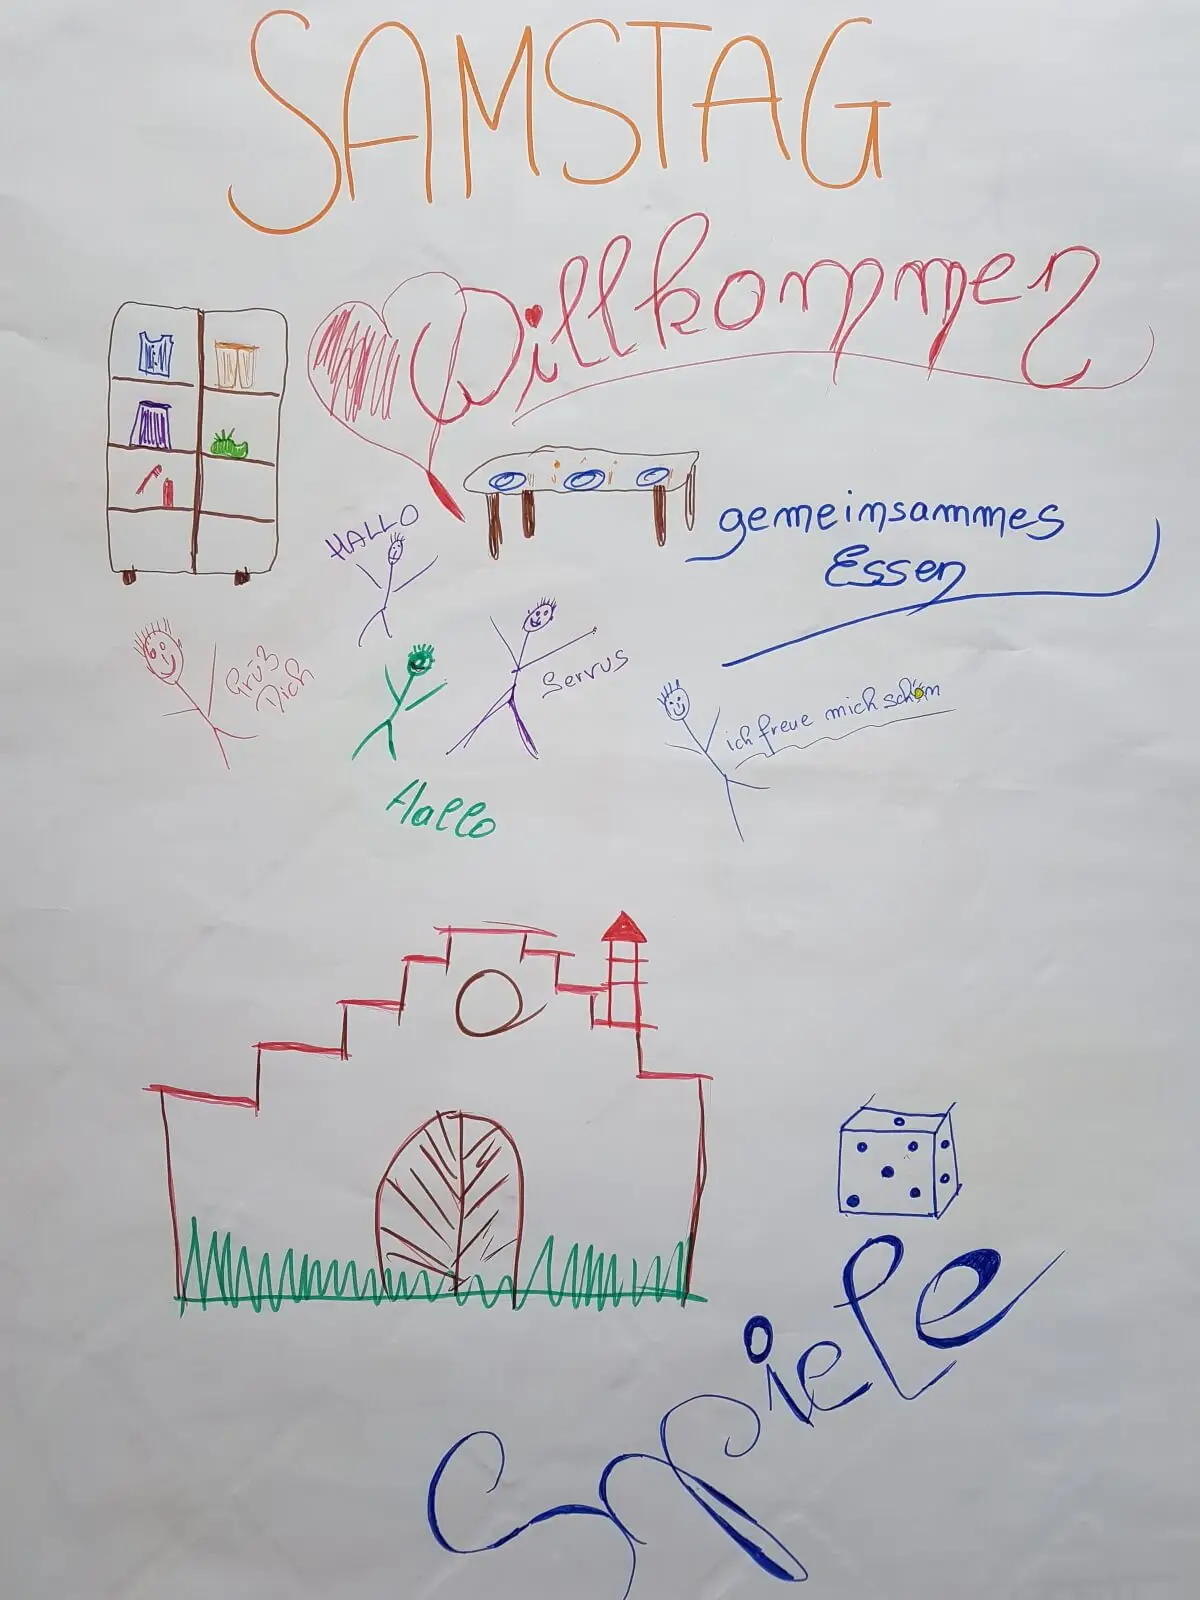 SAMSTAG
Willkommen
gemeinsammes
Essen
HALLO
Grüß
Dich
Servus
ich freue mich schon
Hallo
Spiele